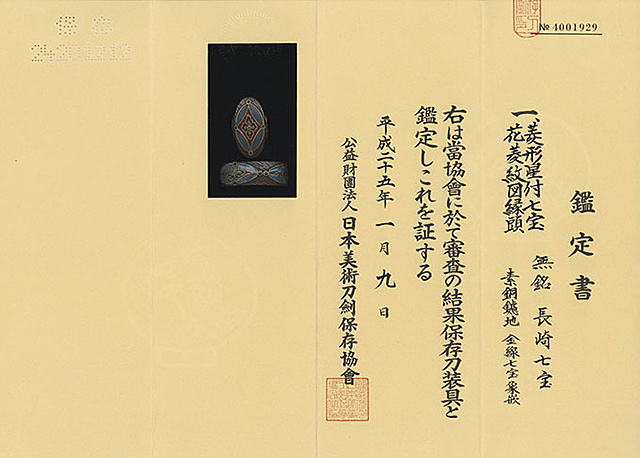 № 4001929
鑑定書
一、菱形星付七宝
花菱紋図縁頭
無銘 長崎七宝
素銅鑢地 金線七宝象嵌
右は當協會に於て審査の結果保存刀装具と
鑑定しこれを証する
平成二十五年一月九日
公益財團法人 日本美術刀劍保存協會